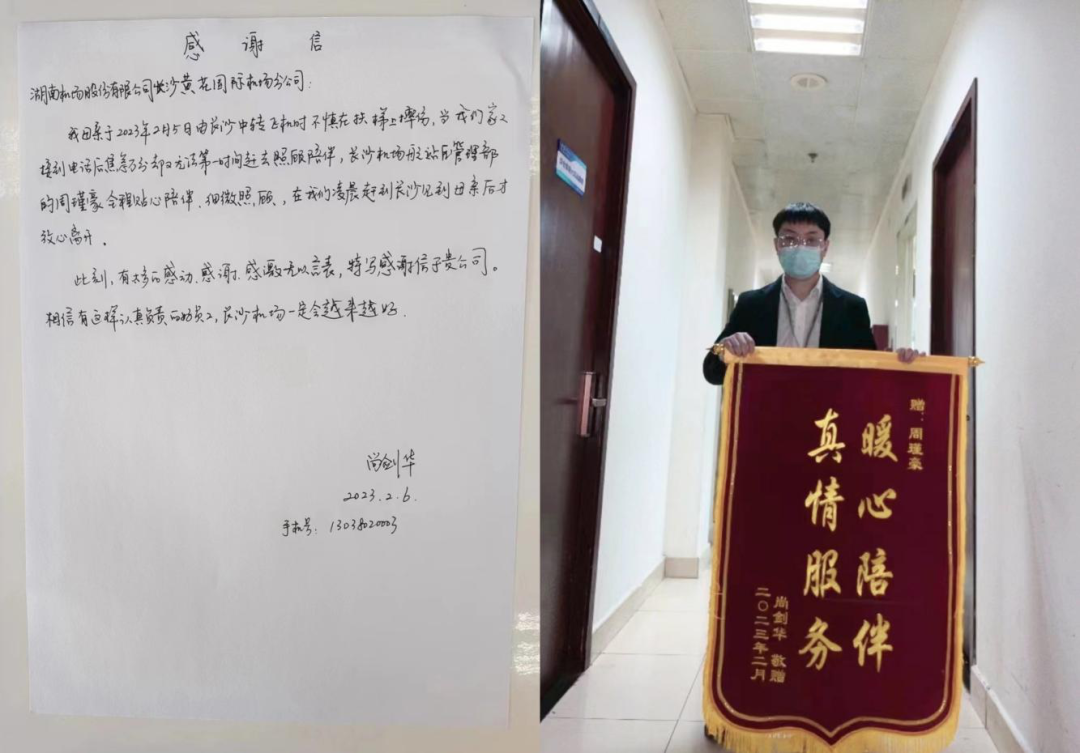 感谢信
湖南机场股份有限公司长沙黄花国际机场分公司：
我母亲于2023年2月5日由长沙中转飞机时不慎在扶梯上摔伤，当我们家人
接到电话后焦急万分却又无法第一时间赶去照顾陪伴，长沙机场航站区管理部
的周瑾豪全程贴心陪伴、细微照顾，在我们凌晨赶到长沙见到母亲后才
放心离开。
此刻，有太多的感动、感谢、感激无以言表，特写感谢信于贵公司。
相信有这样认真负责的员工，长沙机场一定会越来越好.
尚剑华
2023.2.6.
手机号：13038020003
赠：周瑾豪
暖心陪伴
真情服务
尚剑华 敬赠
二〇二三年二月